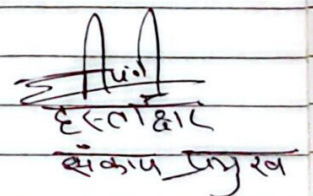 हस्ताक्षर
संकाय प्रमुख